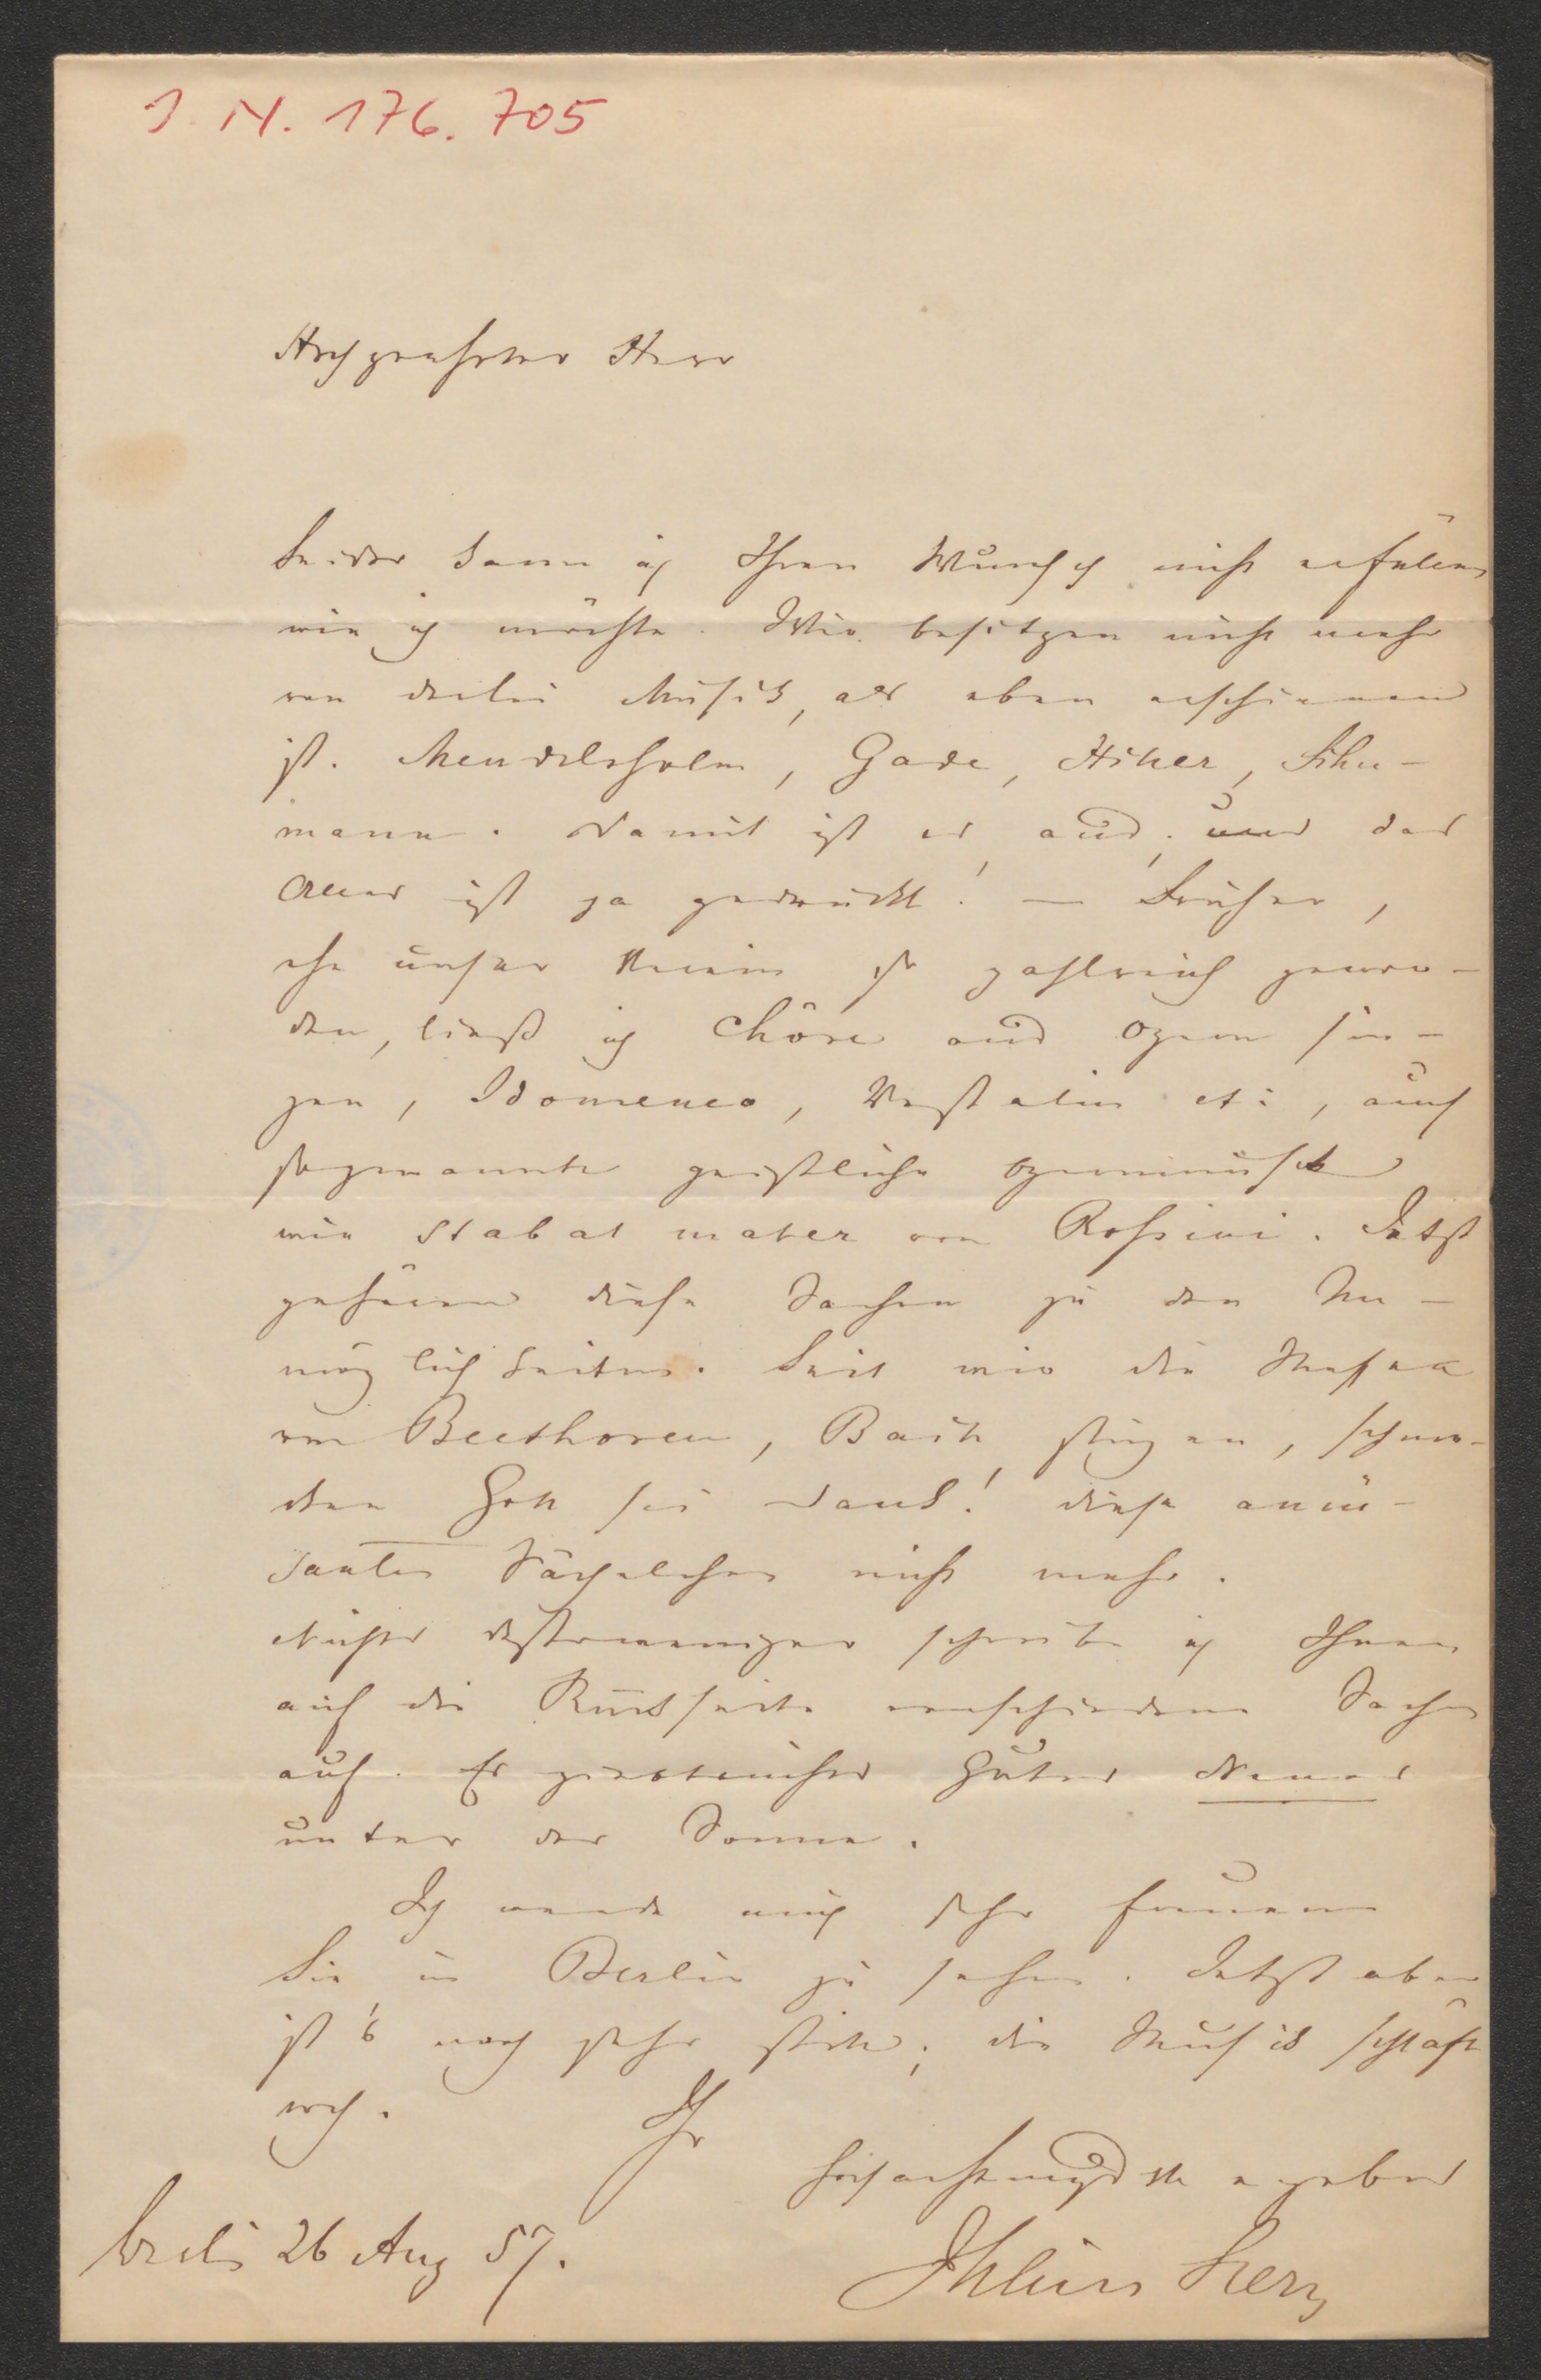 J. N. 176.705
Hochgeehrter Herr
Leider kann ich Ihren Wunsch nicht erfüllen
wie ich möchte. Wir besitzen nicht mehr
von derlei Musik, als eben erschienen
ist. Mendelssohn, Gade, Hiller, Schu-
mann. Damit ist es aus, und das
Alles ist ja gedruckt! — Früher,
ehe unser Verein so zahlreich gewor-
den, ließ ich Chöre aus Opern sin-
gen, Idomeneo, Vestalin etc, auch
sogenannte geistliche Opernmusik
wie Stabat mater von Rossini. Jetzt
gehören diese Sachen zu den Un-
möglichkeiten. Seit wir die Messen
von Beethoven, Bach singen, schme-
cken Gott sei Dank! diese amü-
santen Sächelchen nicht mehr.
Nichts destoweniger schreibe ich Ihnen
auf die Rückseite verschiedene Sachen
auf. Es giebt nichts Gutes Neues
unter der Sonne.
Ich werde mich sehr freuen
Sie in Berlin zu sehen. Jetzt aber
ist's noch sehr still; die Musik schläft
noch.
Ihr
hochachtungsvollst ergebener
Berlin 26 Aug 57.
Julius Stern